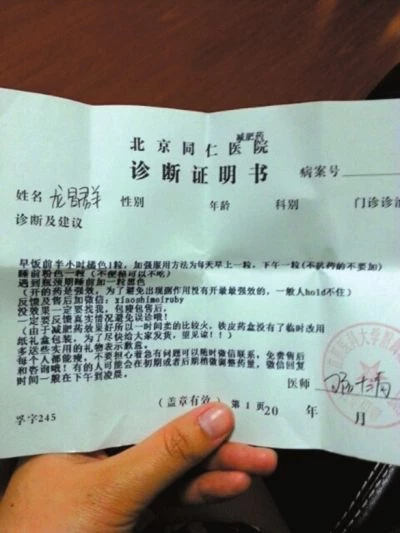 减肥药
北京同仁医院
诊断证明书
病案号
姓名 性别 年龄 科别 门诊诊
诊断及建议
早饭前半小时橘色1粒，加强服用方法为每天早上一粒，下午一粒（不扒药的不要加）
睡前粉色一粒（不便秘可以不吃）
遇到瓶颈期睡前加一粒黑色
（开的药是强效，为了避免出现副作用没有开最最强效的，一般人hold不住）
反馈及售后加微信：xiaoshimeiruby
没效果一定要找我，包瘦包售后，
一定要反馈真实情况避免误诊哦！
（由于减肥药效果好所以一时间卖的比较火，铁皮药盒没有了临时改用
纸礼盒包装，为了尽快给大家发货，望见谅！！）
多送些实用的礼物表示歉意，
每个人都能瘦，不要担心着急有问题可以随时微信联系，免费售后
和咨询哦！有的人可能会在初期或者后期稍微调整药量，微信回复
时间一般在下午到凌晨，
医师
（盖章有效） 第1页 20 年 月
孚字245